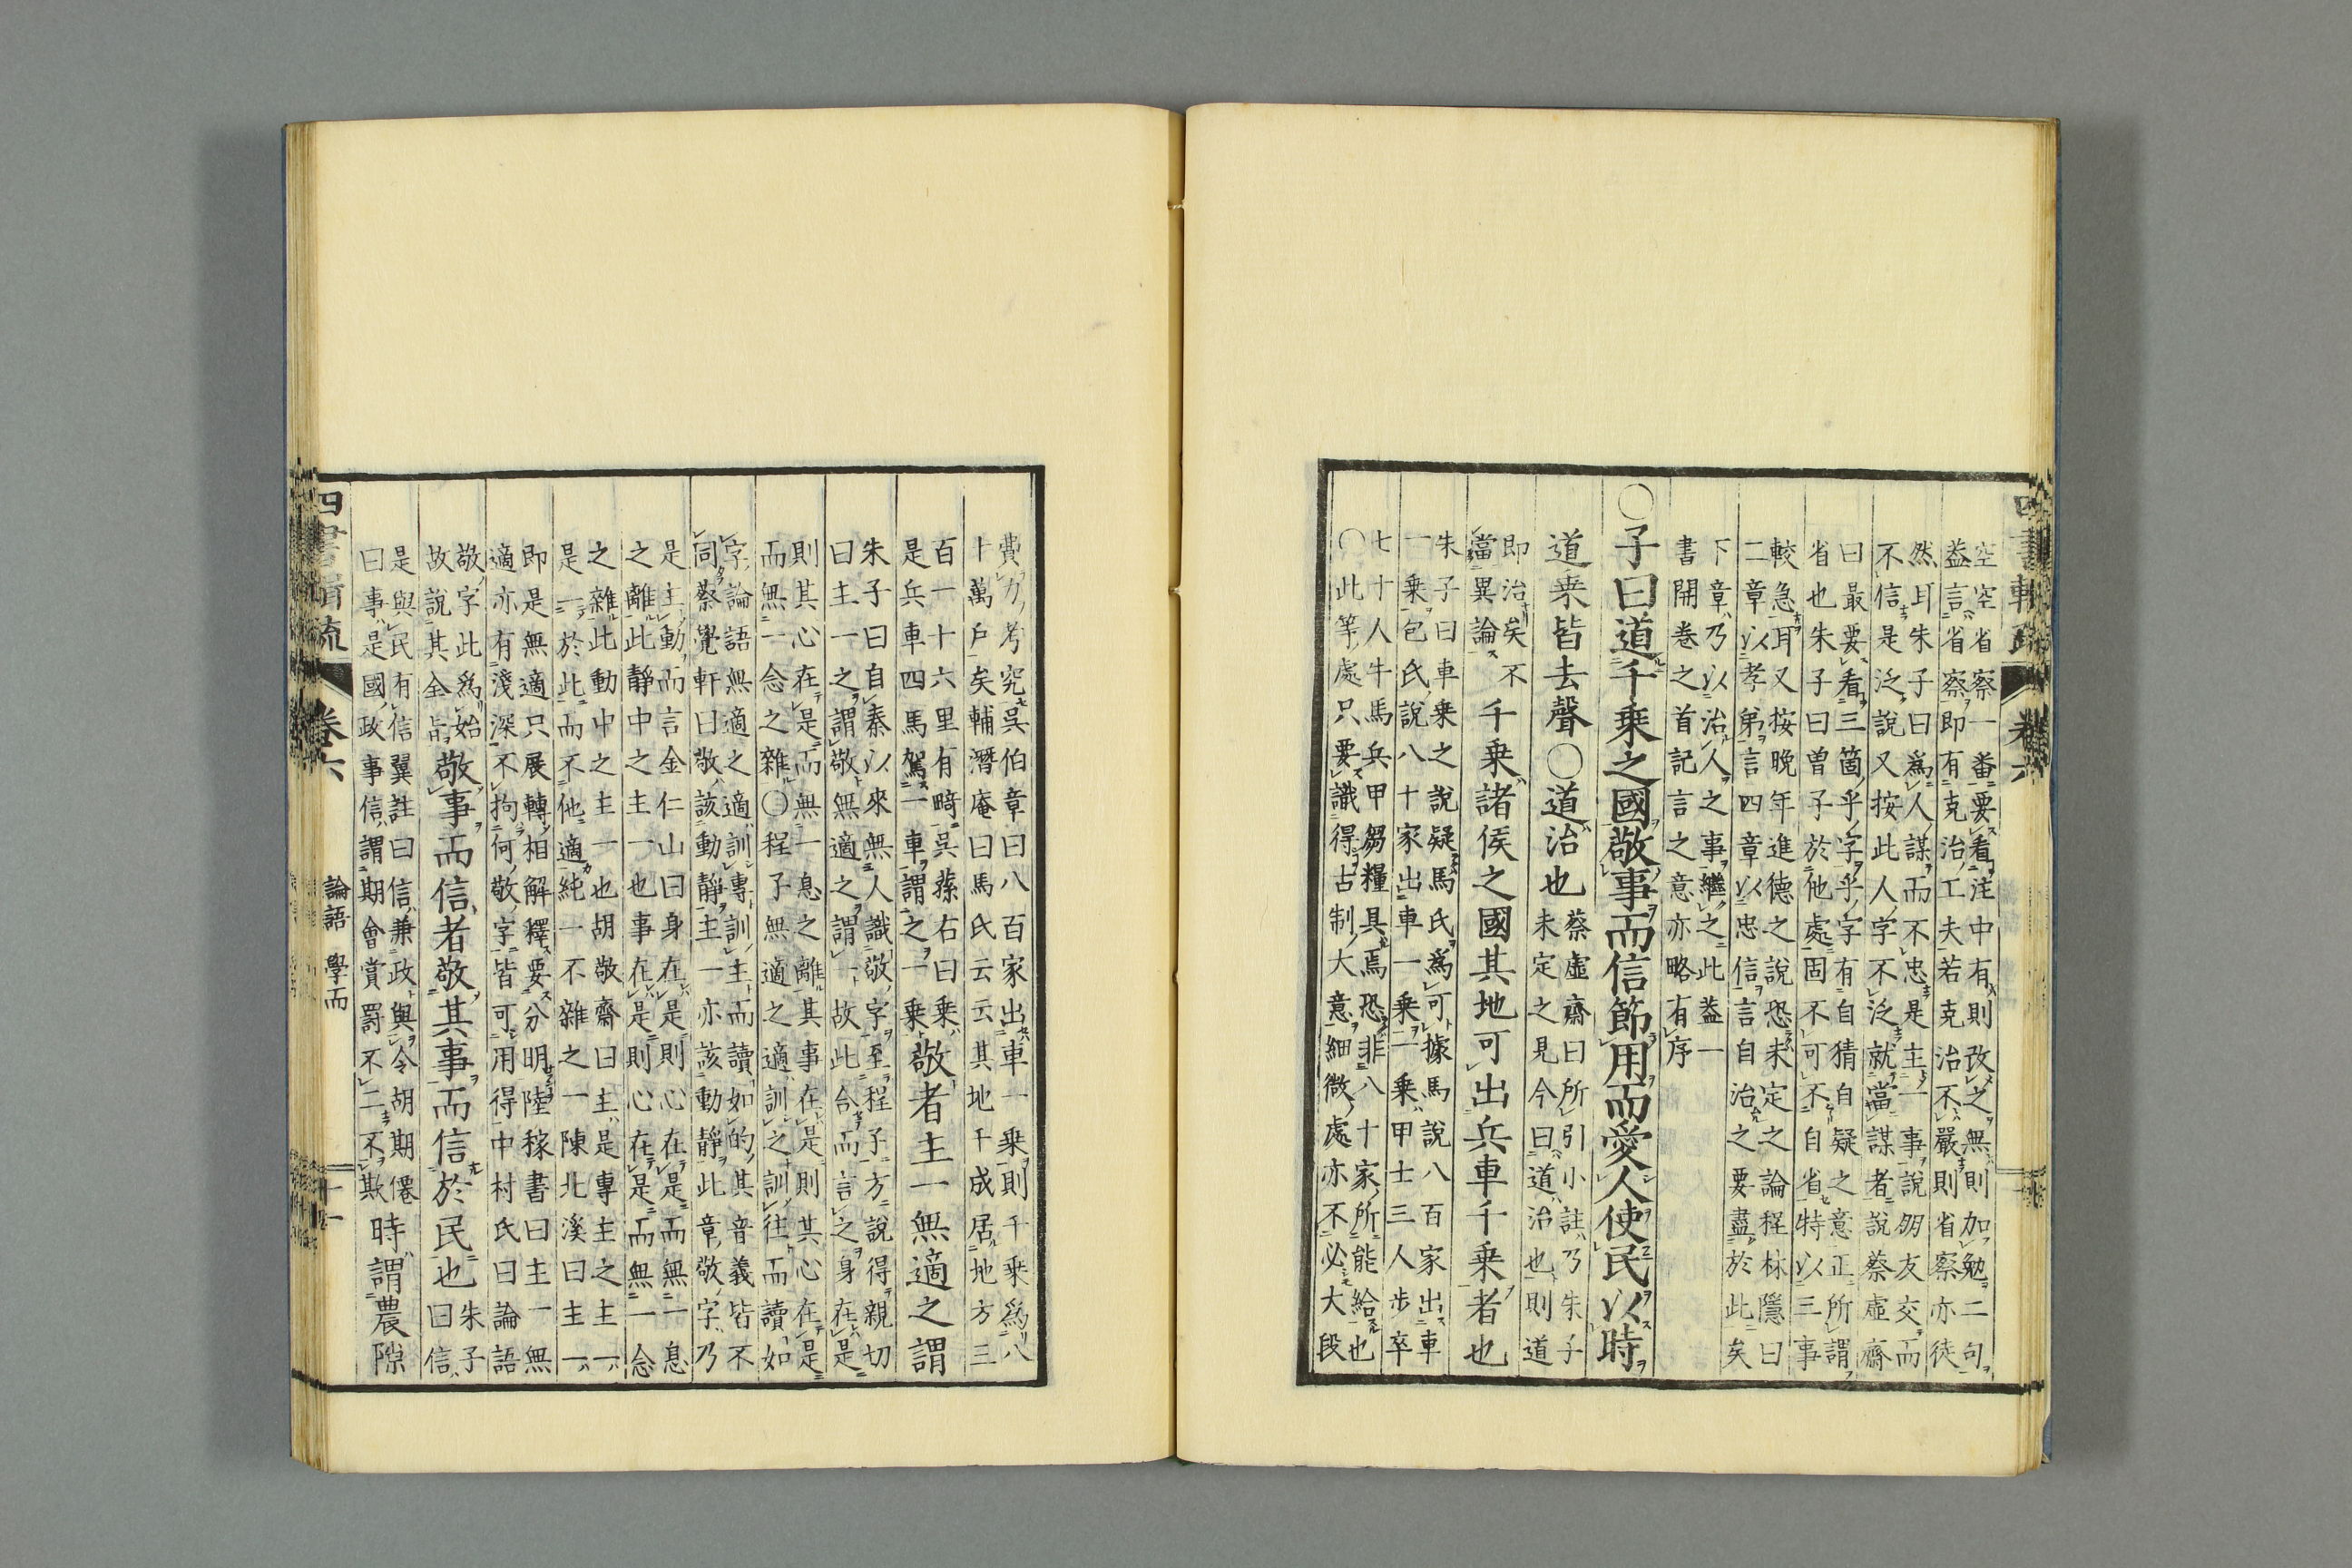 空空省察一番要看注中有則改之無則加勉二句
蓋言省察即有克治工夫若克治不嚴則省察亦徒
然耳朱子曰爲人謀而不忠是主一事說朋友交而
不信是泛說又按此人字不泛就當謀者說蔡虛齋
曰最要看三箇乎字乎字有自猜自疑之意正所謂
省也朱子曰曽子於他處固不可不自省特以三事
較急耳又按晚年進德之說恐未定之論程林隱曰
二章以孝弟言四章以忠信言自治之要盡於此矣
下章乃以治人之事繼之此蓋一
書開巻之首記言之意亦略有序
〇子曰道千乗之國敬事而信節用而愛人使民以時
道乗皆去聲〇道治也
蔡虛齋曰所引小註乃朱子
未定之見今曰道治也則道
即治矣不
當異論
千乗諸侯之國其地可出兵車千乗者也
朱子曰車乗之說疑馬氏爲可據馬說八百家出車
一乗包氏說八十家出車一乗二乗甲士三人步卒
七十人牛馬兵甲芻糧具焉恐非八十家所能給也
〇此等處只要識得古制大意細微處亦不必大段
費力考究吳伯章曰八百家出車一乗則千乗爲八
十萬戶矣輔潛庵曰馬氏云云其地千成居地方三
百一十六里有畸吳蓀右曰乗
是兵車四馬駕一車謂之一乗
敬者主一無適之謂
朱子曰自秦以來無人識敬字至程子方說得親切
曰主一之謂敬無適之謂一故此合而言之身在是
則其心在是而無一息之離其事在是則其心在是
而無一念之雜〇程子無適之適訓之訓往而讀如
字論語無適之適訓專訓主而讀如的其音義皆不
同蔡覺軒曰敬該動靜主一亦該動靜此章敬字乃
是主動而言金仁山曰身在是則心在是而無一息
之離此靜中之主一也事在是則心在是而無一念
之雜此動中之主一也胡敬齋曰主是專主之主一
是一於此而不他適純一不雜之一陳北溪曰主一
即是無適只展轉相解釋要分明陸稼書曰主一無
適亦有淺深不拘何敬字皆可用得中村氏曰論語
敬字此爲始
故說其全旨
敬事而信者敬其事而信於民也
朱子
曰信
是與民有信翼註曰信兼政與令胡期僊
曰事是國政事信謂期會賞罰不二不欺
時謂農隙
四書輯疏
巻六
論語 學而
十一